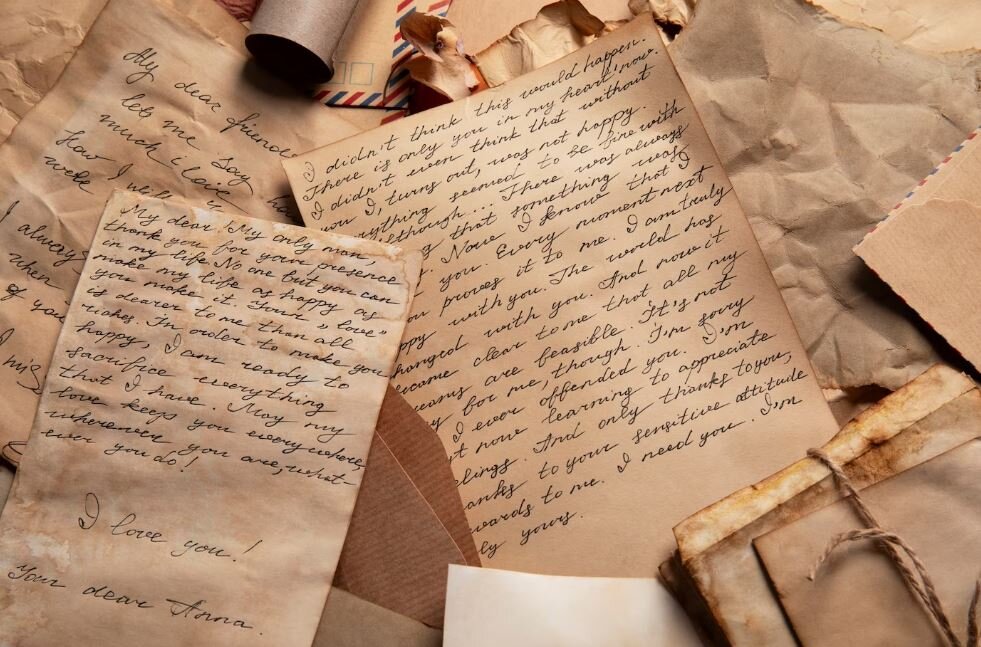 My dear friend
let me say
much i
How I will
week
ha
I
always
when
of you
I mis
My dear! My only man,
thank you for your presence
in my life. No one but you can
make my life as happy as
you make it. Your "love"
is dearer to me than all
riches. In order to make you
happy, I am ready to
sacrifice everything
that I have. May my
love keeps you everywhere,
wherever you are, what-
ever you do!
I love you!
Your dear Anna.
I didn't think this would happen.
There is only you in my heart now.
I didn't even think that without
you I, turns out, was not happy.
rything seemed to be fine with
lthough... There was always
g that something was
. Now I know that I
you. Every moment next
ou proves it to me. I am truly
ppy with you. The world has
hanged with you. And now it
ecame clear to me that all my
reams are feasible. It's not
y for me, though. I'm sorry
I ever offended you. I'm
t now learning to appreciate
elings. And only thanks to you,
anks to your sensitive attitude
wards to me. I need you. I'm
ly yours.